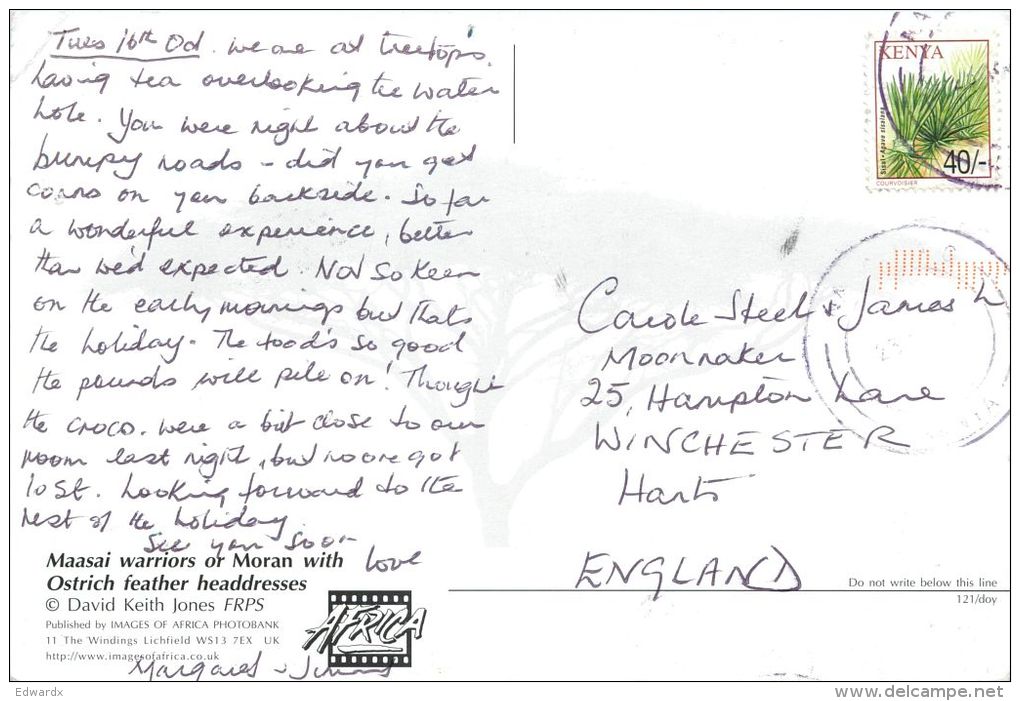 Tues 16th Oct. we are at treetops,
having tea overlooking the water
hole. You were right about the
bumpy roads - did you get
corns on your backside. So far
a wonderful experience, better
than we'd expected. Not so keen
on the early mornings but thats
the holiday. The food's so good
the pounds will pile on! Thought
the crocs. were a bit close to our
room last night, but no one got
lost. Looking forward to the
rest of the holiday.
See you soon
Love
Margaret
Maasai warriors or Moran with
Ostrich feather headdresses
© David Keith Jones FRPS
Published by IMAGES OF AFRICA PHOTOBANK
11 The Windings Lichfield WS13 7EX UK
http://www.imagesofafrica.co.uk
AFRICA
KENYA
Sisal - Agave sisalana
40/-
COURVOISIER
Carole Steel & James
Moonraker
25, Hampton Lane
WINCHESTER
Hants
ENGLAND
Do not write below this line
121/doy
Edwardx
www.delcampe.net